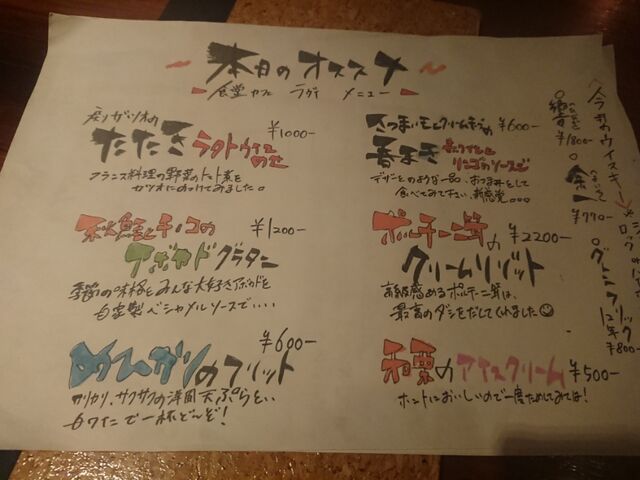 ~ 本日のオススメ ~
食堂カフェ ラグイ メニュー
戻りガツオの
たたき ラタトゥイユのせ ¥1000-
フランス料理の野菜のトマト煮を
カツオにのっけてみました。
秋鮭とキノコの ¥1200-
アボカドグラタン
季節の味格とみんな大好きアボカドを
自家製ベシャメルソースで…
¥600-
めひかりのフリット
カリカリ、サクサクの洋風天ぷらを
白ワインで一杯どーぞ!
さつまいもとクリームチーズの ¥600-
春まき 赤ワインとリンゴのソースで
デザートのような一品。おつまみとして
食べてみて下さい、新感覚。。。
ポルチーニ茸の ¥2200-
クリームリゾット
高級感あるポルチーニ茸は、
最高のダシをだしてくれました☺
和栗のアイスクリーム ¥500-
ホントにおいしいので一度ためしてみては!
今旬のウイスキー
響 ¥1800-
余市 ¥770-
グレンフィリック 12年 ¥800-